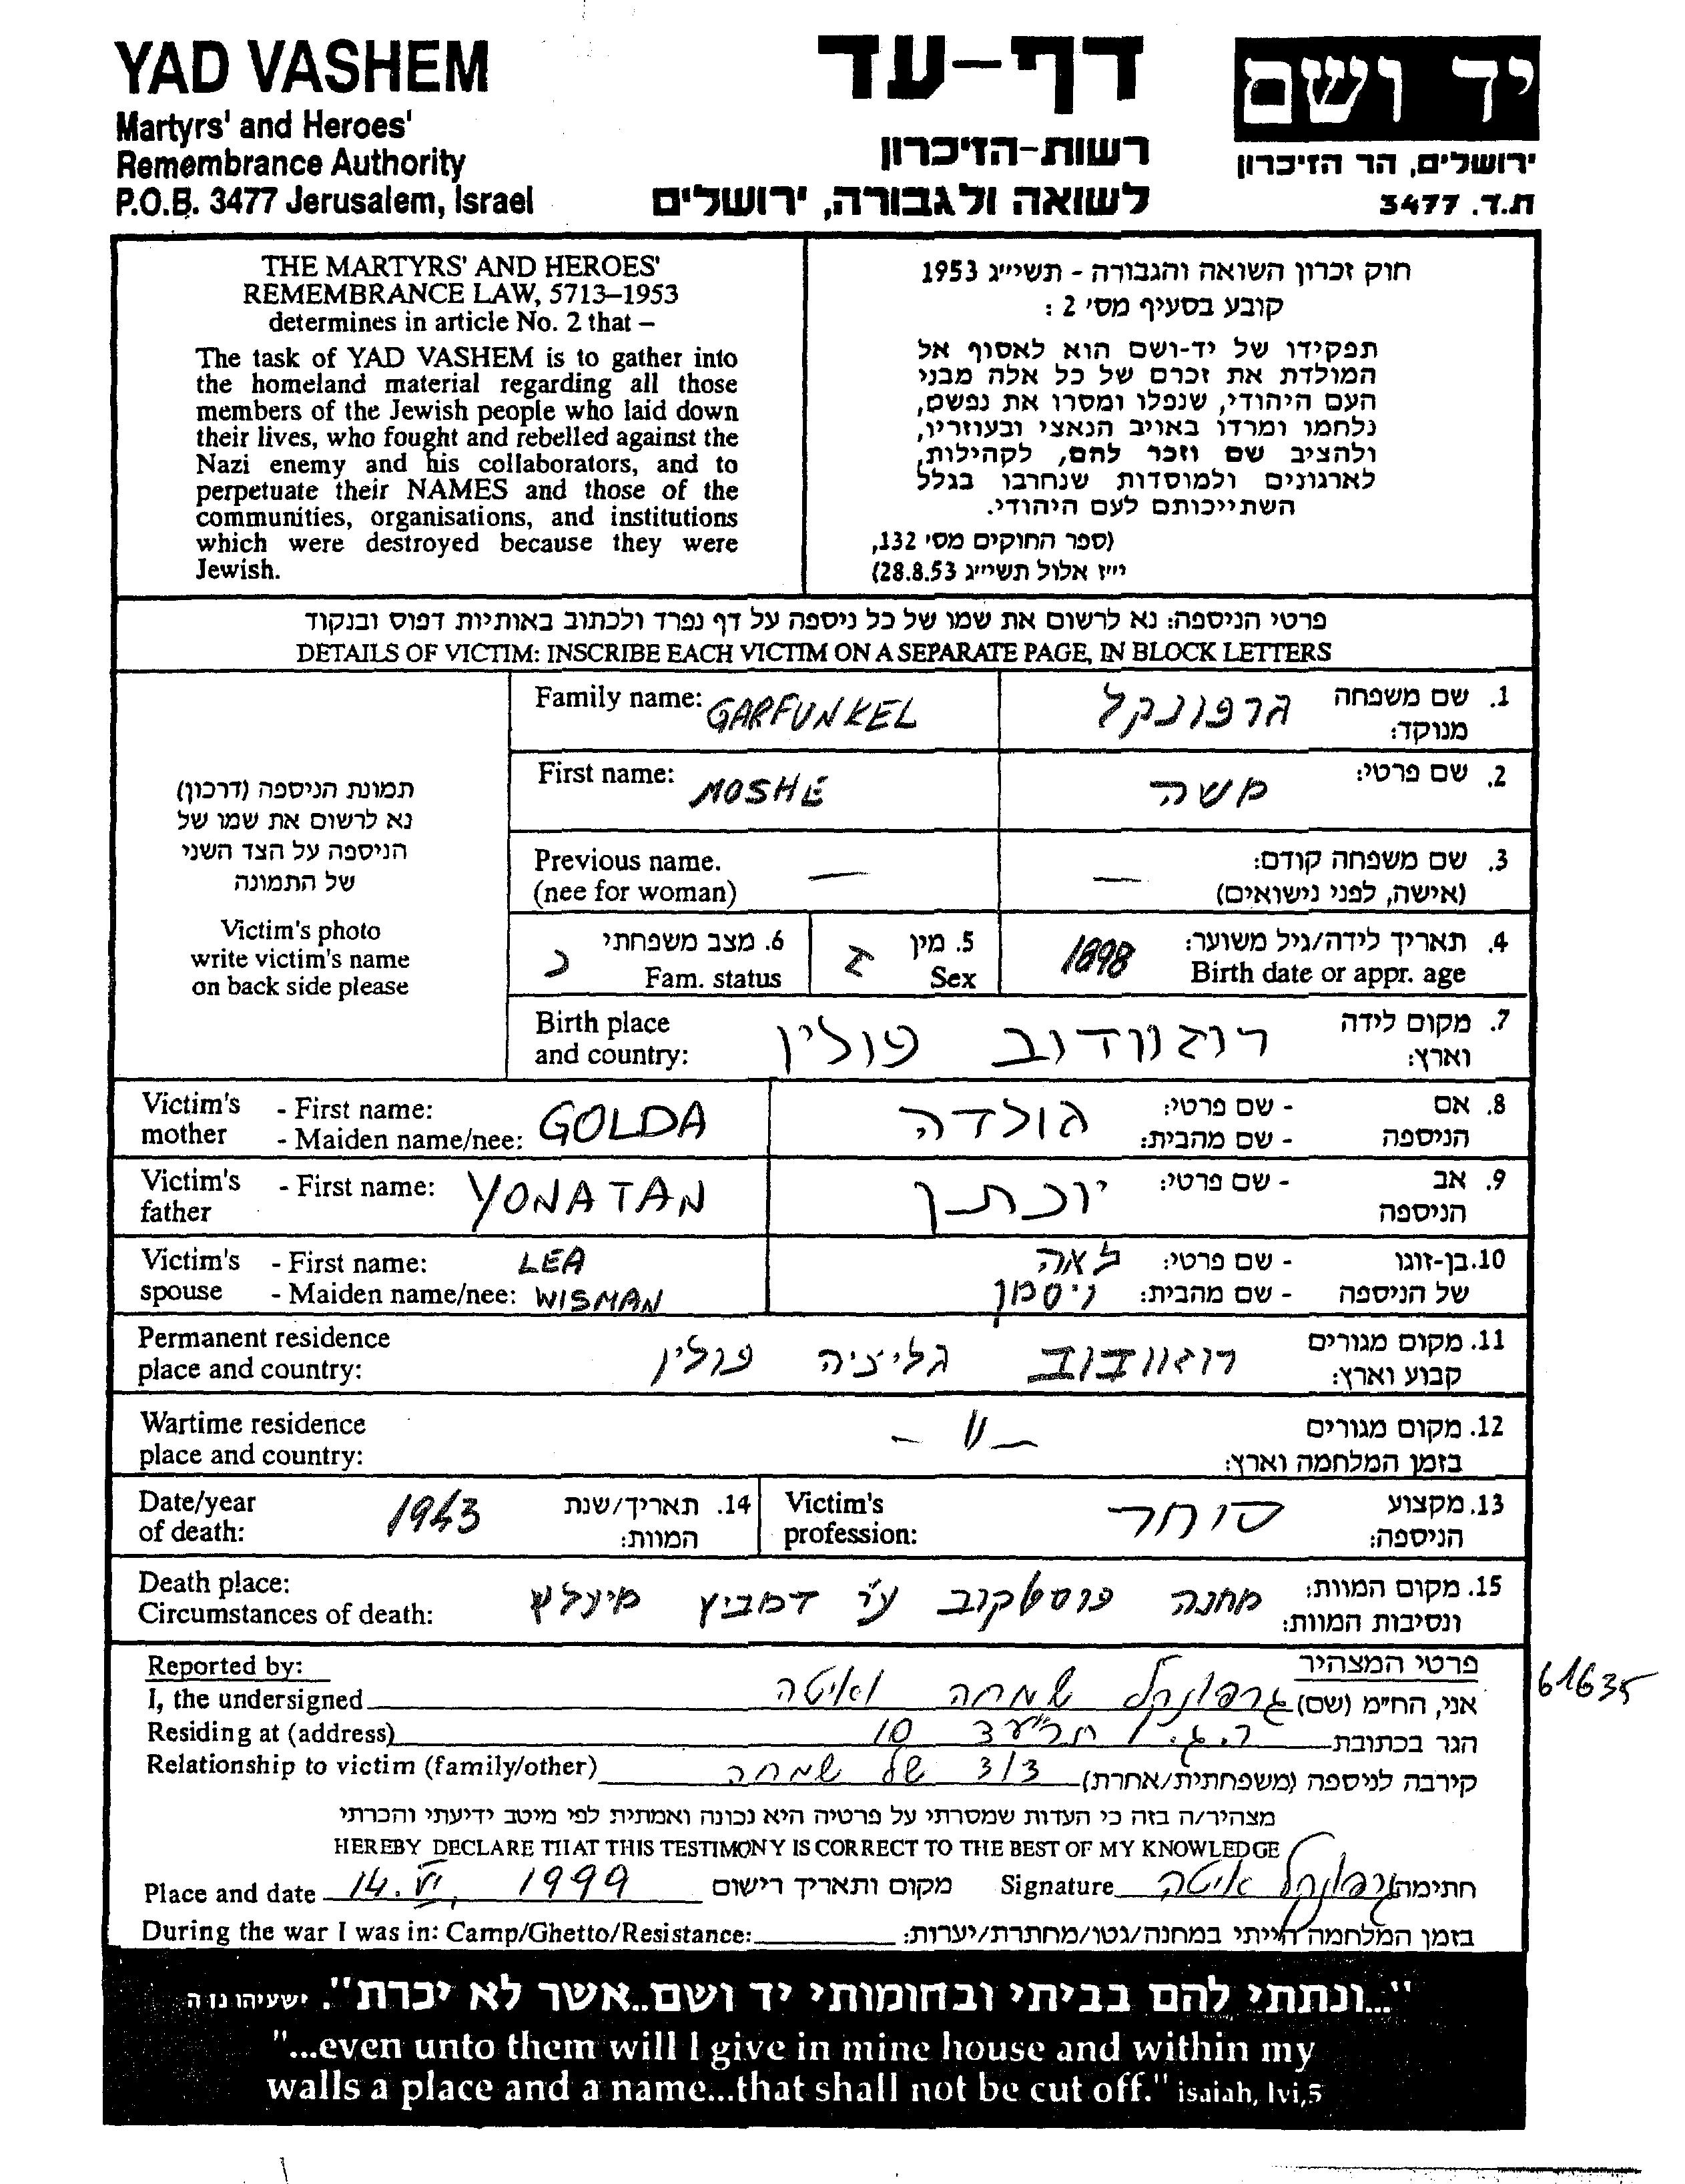 YAD VASHEM
Martyrs' and Heroes'
Remembrance Authority
P.O.B. 3477 Jerusalem, Israel
דף-עד
רשות-הזיכרון
לשואה ולגבורה, ירושלים
יד ושם
ירושלים, הר הזיכרון
ת.ד. 3477
THE MARTYRS' AND HEROES'
REMEMBRANCE LAW, 5713–1953
determines in article No. 2 that –
The task of YAD VASHEM is to gather into
the homeland material regarding all those
members of the Jewish people who laid down
their lives, who fought and rebelled against the
Nazi enemy and his collaborators, and to
perpetuate their NAMES and those of the
communities, organisations, and institutions
which were destroyed because they were
Jewish.
חוק זכרון השואה והגבורה - תשי״ג 1953
קובע בסעיף מס' 2 :
תפקידו של יד-ושם הוא לאסוף אל
המולדת את זכרם של כל אלה מבני
העם היהודי, שנפלו ומסרו את נפשם,
נלחמו ומרדו באויב הנאצי ובעוזריו,
ולהציב שם וזכר להם, לקהילות,
לארגונים ולמוסדות שנחרבו בגלל
השתייכותם לעם היהודי.
(ספר החוקים מס' 132,
י״ז אלול תשי״ג 28.8.53)
פרטי הניספה: נא לרשום את שמו של כל ניספה על דף נפרד ולכתוב באותיות דפוס ובנקוד
DETAILS OF VICTIM: INSCRIBE EACH VICTIM ON A SEPARATE PAGE, IN BLOCK LETTERS
תמונת הניספה (דרכון)
נא לרשום את שמו של
הניספה על הצד השני
של התמונה
Victim's photo
write victim's name
on back side please
Family name: GARFUNKEL
1. שם משפחה מנוקד: גרפונקל
First name: MOSHE
2. שם פרטי: משה
Previous name. —
(nee for woman)
3. שם משפחה קודם: —
(אישה, לפני נישואים)
4. תאריך לידה/גיל משוער: 1898
Birth date or appr. age
5. מין ז
Sex
6. מצב משפחתי נ
Fam. status
Birth place
and country:
7. מקום לידה וארץ: רוזוודוב פולין
Victim's mother - First name: GOLDA
- Maiden name/nee:
8. אם הניספה - שם פרטי: גולדה
- שם מהבית:
Victim's father - First name: YONATAN
9. אב הניספה - שם פרטי: יונתן
Victim's spouse - First name: LEA
- Maiden name/nee: WISMAN
10. בן-זוגו של הניספה - שם פרטי: לאה
- שם מהבית: ויסמן
Permanent residence
place and country:
11. מקום מגורים קבוע וארץ: גליציה פולין
Wartime residence
place and country:
12. מקום מגורים בזמן המלחמה וארץ: — 11 —
Date/year
of death:
14. תאריך/שנת המוות: 1943
Victim's
profession:
13. מקצוע הניספה: סוחר
Death place:
Circumstances of death:
15. מקום המוות: ונסיבות המוות: מחנה פוסטקוב ע״י דמביץ מיעלץ
Reported by:
פרטי המצהיר
I, the undersigned
אני, הח״מ (שם) גרפונקל שמחה ואיטה
61635
Residing at (address)
הגר בכתובת 10
Relationship to victim (family/other)
קירבה לניספה (משפחתית/אחרת) דוד של שמחה
מצהיר/ה בזה כי העדות שמסרתי על פרטיה היא נכונה ואמתית לפי מיטב ידיעתי והכרתי
HEREBY DECLARE THAT THIS TESTIMONY IS CORRECT TO THE BEST OF MY KNOWLEDGE
Place and date 14. VI. 1999 מקום ותאריך רישום
Signature גרפונקל איטה חתימה
During the war I was in: Camp/Ghetto/Resistance:
בזמן המלחמה הייתי במחנה/גטו/מחתרת/יערות:
"...ונתתי להם בביתי ובחומותי יד ושם..אשר לא יכרת". ישעיהו נו ה
"...even unto them will I give in mine house and within my
walls a place and a name...that shall not be cut off." isaiah, lvi,5